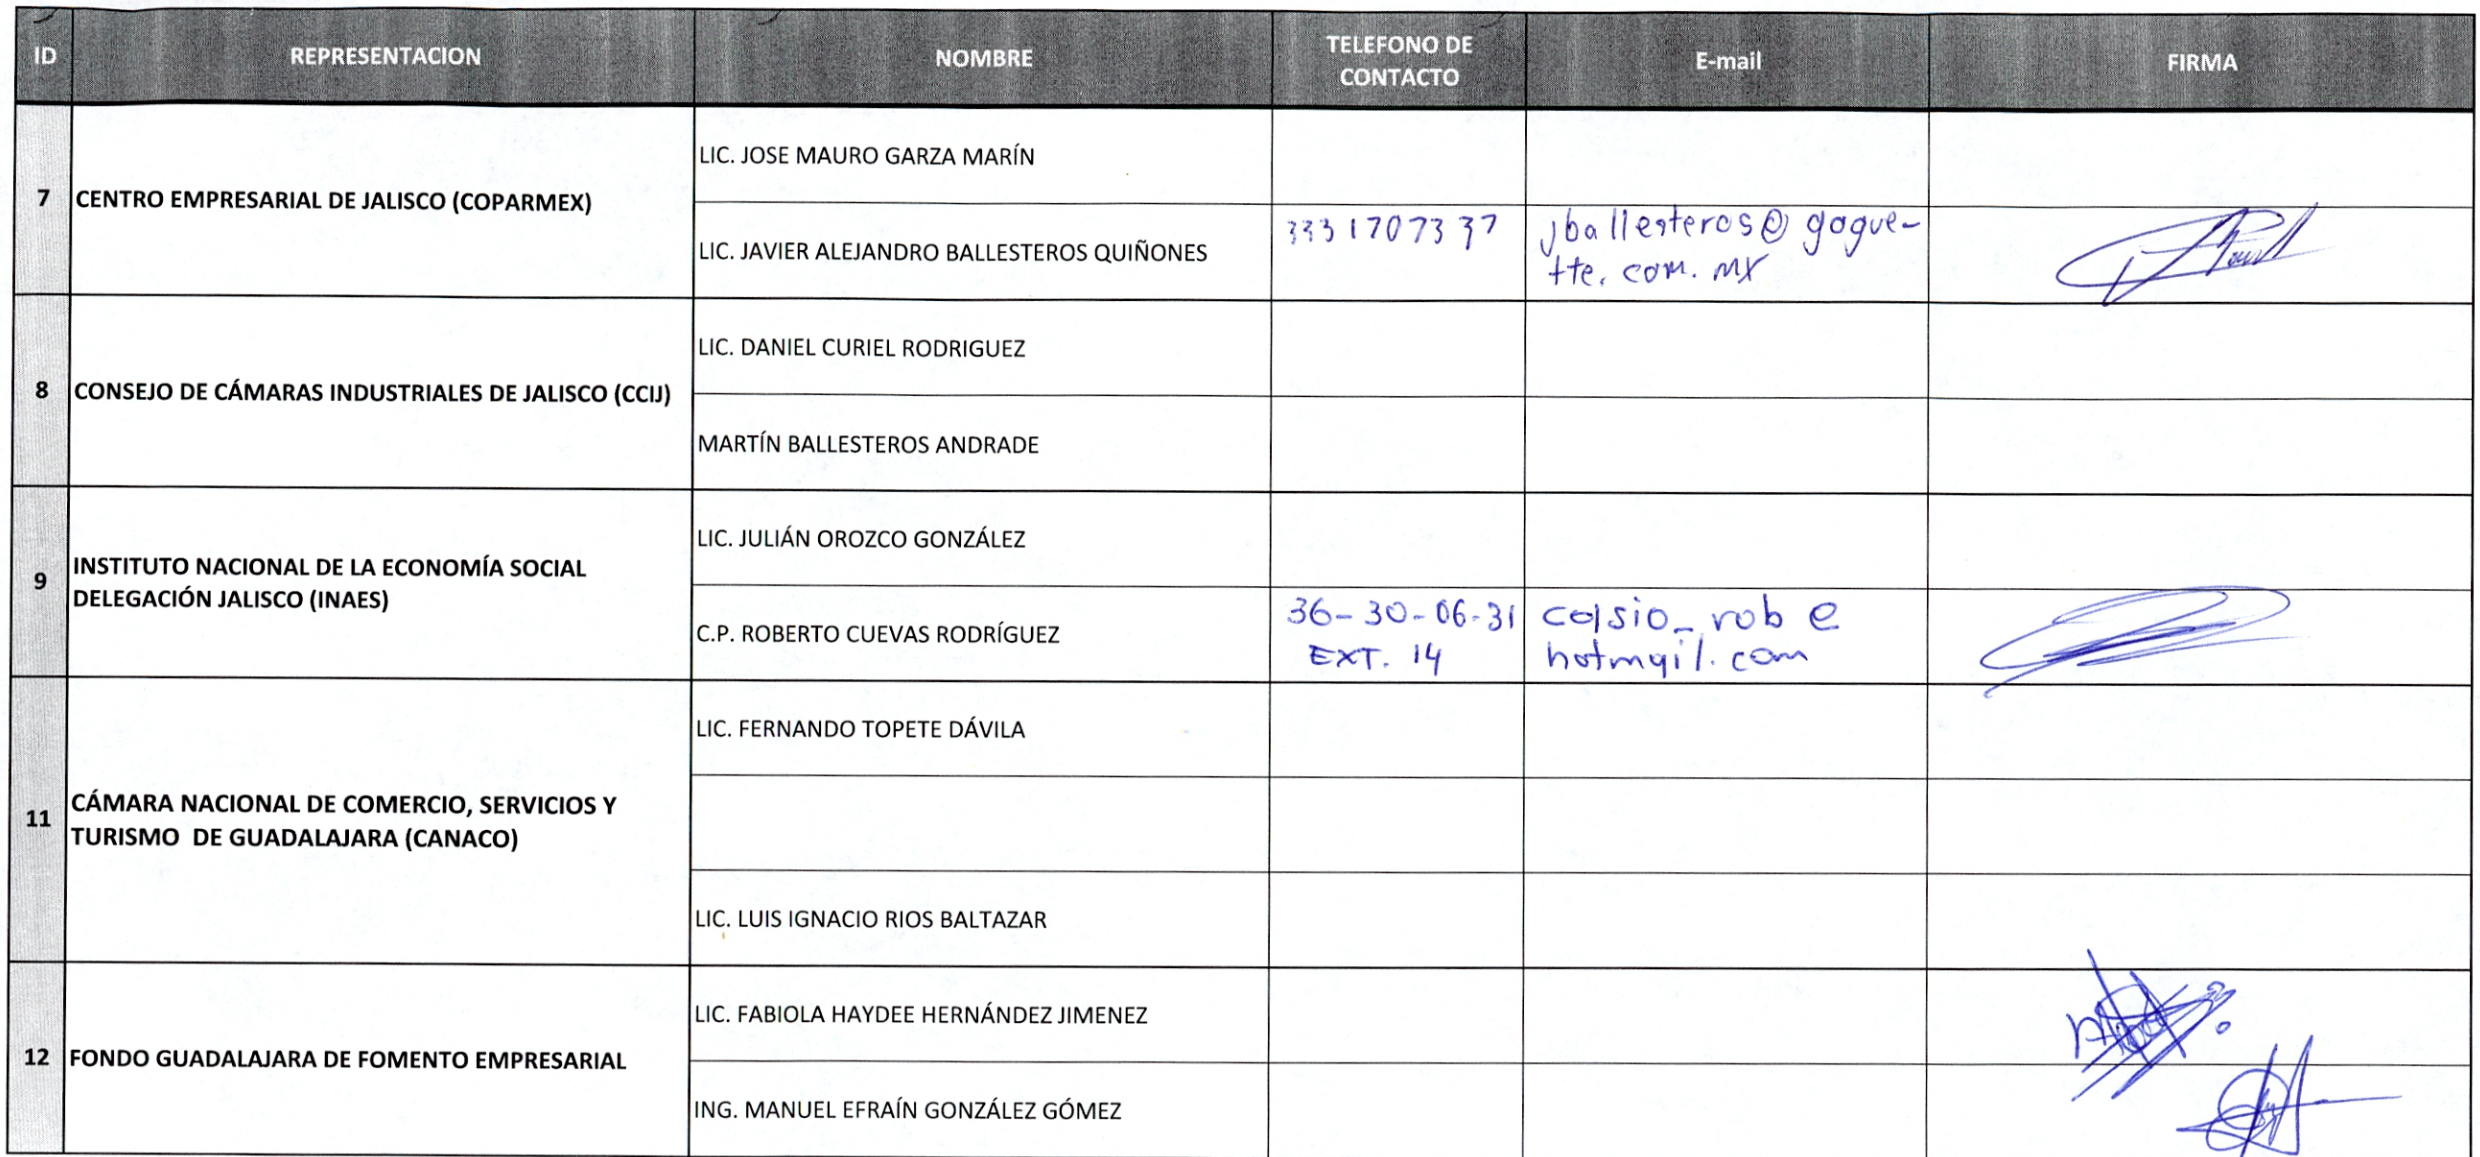 ID REPRESENTACION NOMBRE TELEFONO DE CONTACTO E-mail FIRMA
7 CENTRO EMPRESARIAL DE JALISCO (COPARMEX)
LIC. JOSE MAURO GARZA MARÍN
LIC. JAVIER ALEJANDRO BALLESTEROS QUIÑONES
3331707337
jballesteros@gogue-
tte.com.mx
8 CONSEJO DE CÁMARAS INDUSTRIALES DE JALISCO (CCIJ)
LIC. DANIEL CURIEL RODRIGUEZ
MARTÍN BALLESTEROS ANDRADE
9 INSTITUTO NACIONAL DE LA ECONOMÍA SOCIAL
DELEGACIÓN JALISCO (INAES)
LIC. JULIÁN OROZCO GONZÁLEZ
C.P. ROBERTO CUEVAS RODRÍGUEZ
36-30-06-31
EXT. 14
hotmail.com
11 CÁMARA NACIONAL DE COMERCIO, SERVICIOS Y
TURISMO DE GUADALAJARA (CANACO)
LIC. FERNANDO TOPETE DÁVILA
LIC. LUIS IGNACIO RIOS BALTAZAR
12 FONDO GUADALAJARA DE FOMENTO EMPRESARIAL
LIC. FABIOLA HAYDEE HERNÁNDEZ JIMENEZ
ING. MANUEL EFRAÍN GONZÁLEZ GÓMEZ